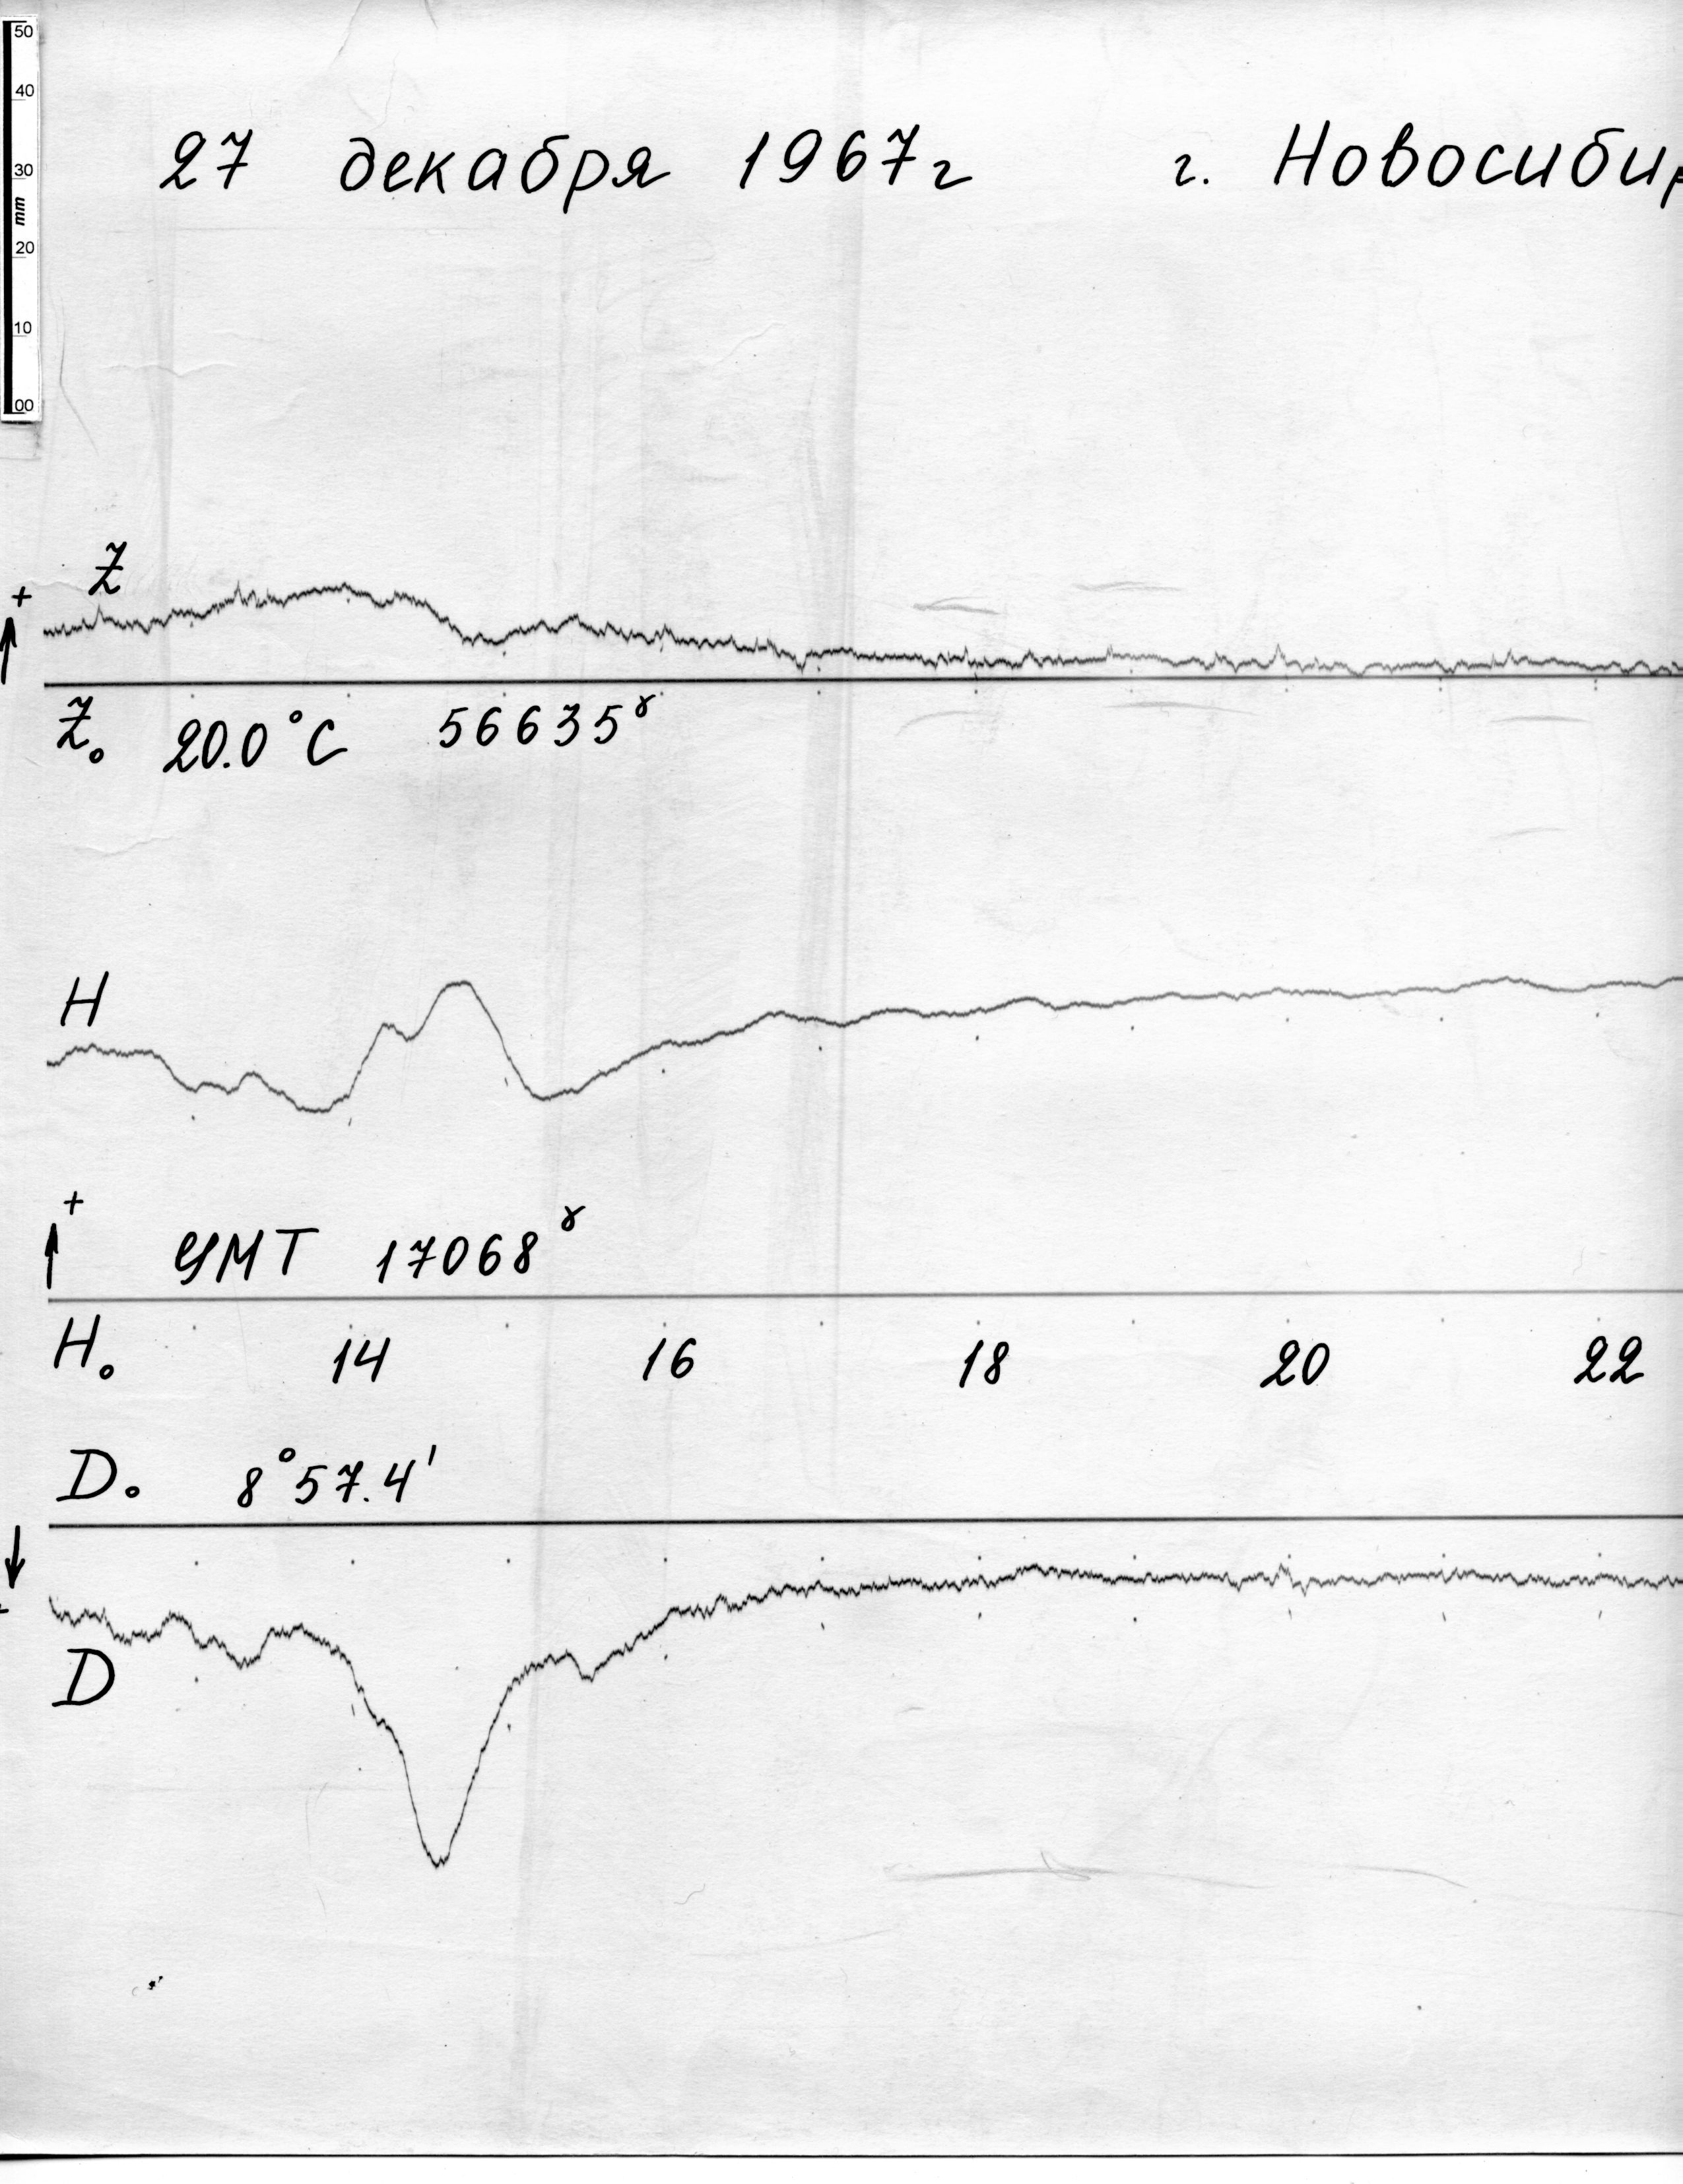 50
40
30
mm
20
10
00
27 декабря 1967г г. Новосибир
Z
+
Z₀ 20.0°C 56635ᵞ
H
+
УМТ 17068ᵞ
H₀ 14 16 18 20 22
D₀ 8°57.4'
D